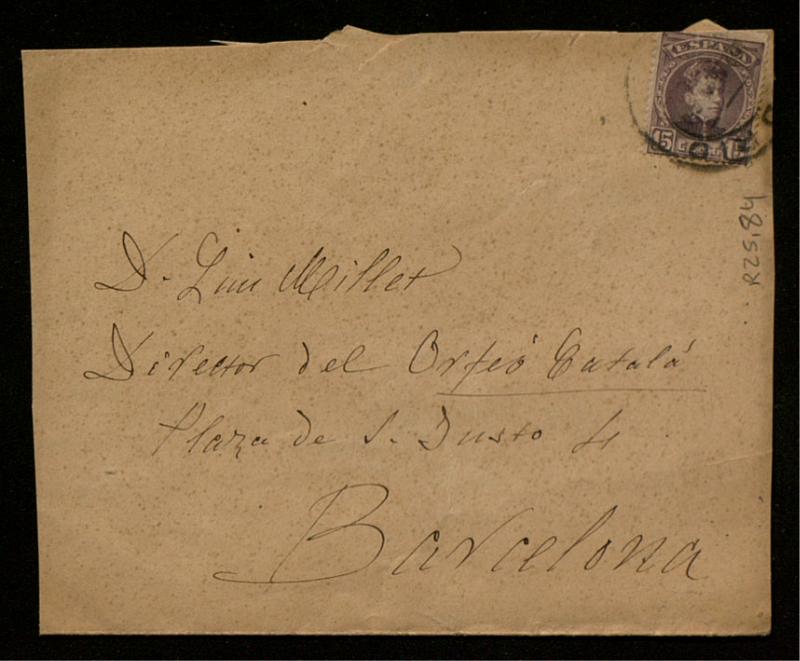 ESPAÑA
15 15
R25,84
D. Luis Millet
Director del Orfeó Catalá
Plaza de S. Justo 4
Barcelona